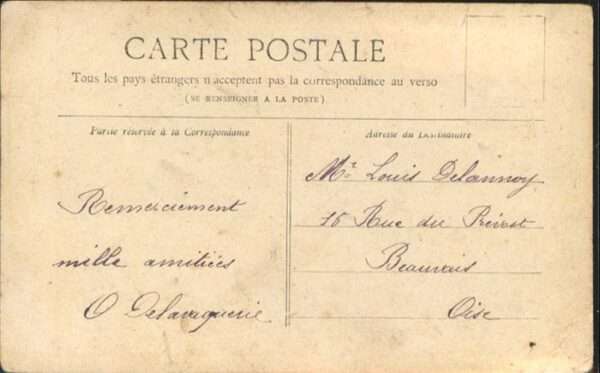 CARTE POSTALE
Tous les pays étrangers n'acceptent pas la correspondance au verso
(SE RENSEIGNER A LA POSTE)
Partie réservée à la Correspondance
Adresse du Destinataire
Remerciement
mille amitiées
O Delavaquerie
Mr. Louis Delannoy
Rue du Prévost
Beauvais
Oise